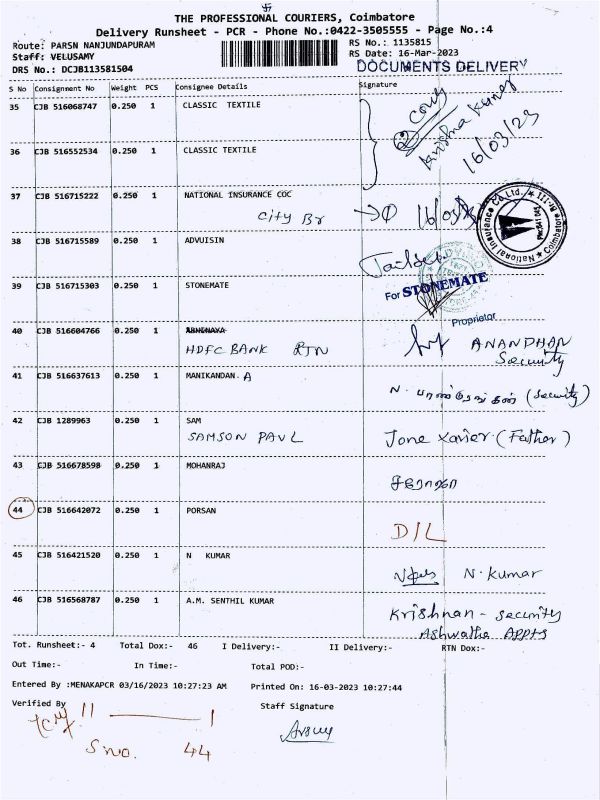 THE PROFESSIONAL COURIERS, Coimbatore
Delivery Runsheet - PCR - Phone No.:0422-3505555 - Page No.:4
Route: PARSN NANJUNDAPURAM
RS No.: 1135815
Staff: VELUSAMY
RS Date: 16-Mar-2023
DRS No.: DCJB113581504
DOCUMENTS DELIVERY
S No Consignment No Weight PCS Consignee Details Signature
35 CJB 516068747 0.250 1 CLASSIC TEXTILE
Krishna Kumar
16/03/23
36 CJB 516552534 0.250 1 CLASSIC TEXTILE
37 CJB 516715222 0.250 1 NATIONAL INSURANCE COC
City Br
National Insurance Co. Ltd.
Coimbatore
38 CJB 516715589 0.250 1 ADVUISIN
39 CJB 516715303 0.250 1 STONEMATE
For STONEMATE
Proprietor
40 CJB 516604766 0.250 1 ABHENAYA
HDFC BANK RTN
ANANDHAN
Security
41 CJB 516637613 0.250 1 MANIKANDAN. A
(Security)
42 CJB 1289963 0.250 1 SAM
SAMSON PAUL
Jone Xavier (Father)
43 CJB 516678598 0.250 1 MOHANRAJ
44 CJB 516642072 0.250 1 PORSAN
D/L
45 CJB 516421520 0.250 1 N KUMAR
N. Kumar
46 CJB 516568787 0.250 1 A.M. SENTHIL KUMAR
Krishnan - Security
Ashwatha APPTS
Tot. Runsheet:- 4 Total Dox:- 46 I Delivery:- II Delivery:- RTN Dox:-
Out Time:- In Time:- Total POD:-
Entered By :MENAKAPCR 03/16/2023 10:27:23 AM Printed On: 16-03-2023 10:27:44
Verified By Staff Signature
S no. 44